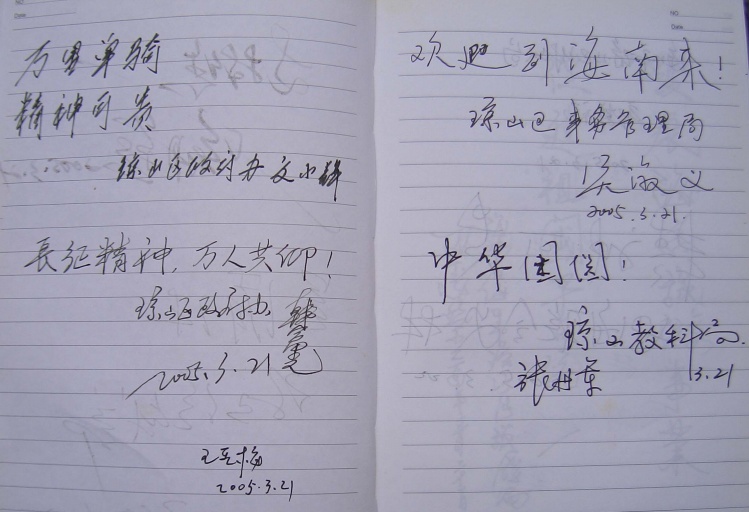 万里单骑
精神可贵
琼山区政府办文小
长征精神，万人共仰！
琼山区政府办 韩
2005.3.21
王
2005.3.21
NO.
Date
欢迎到海南来！
琼山区事务管理局
吴海义
2005.3.21.
中华
琼山教科局
张
3.21